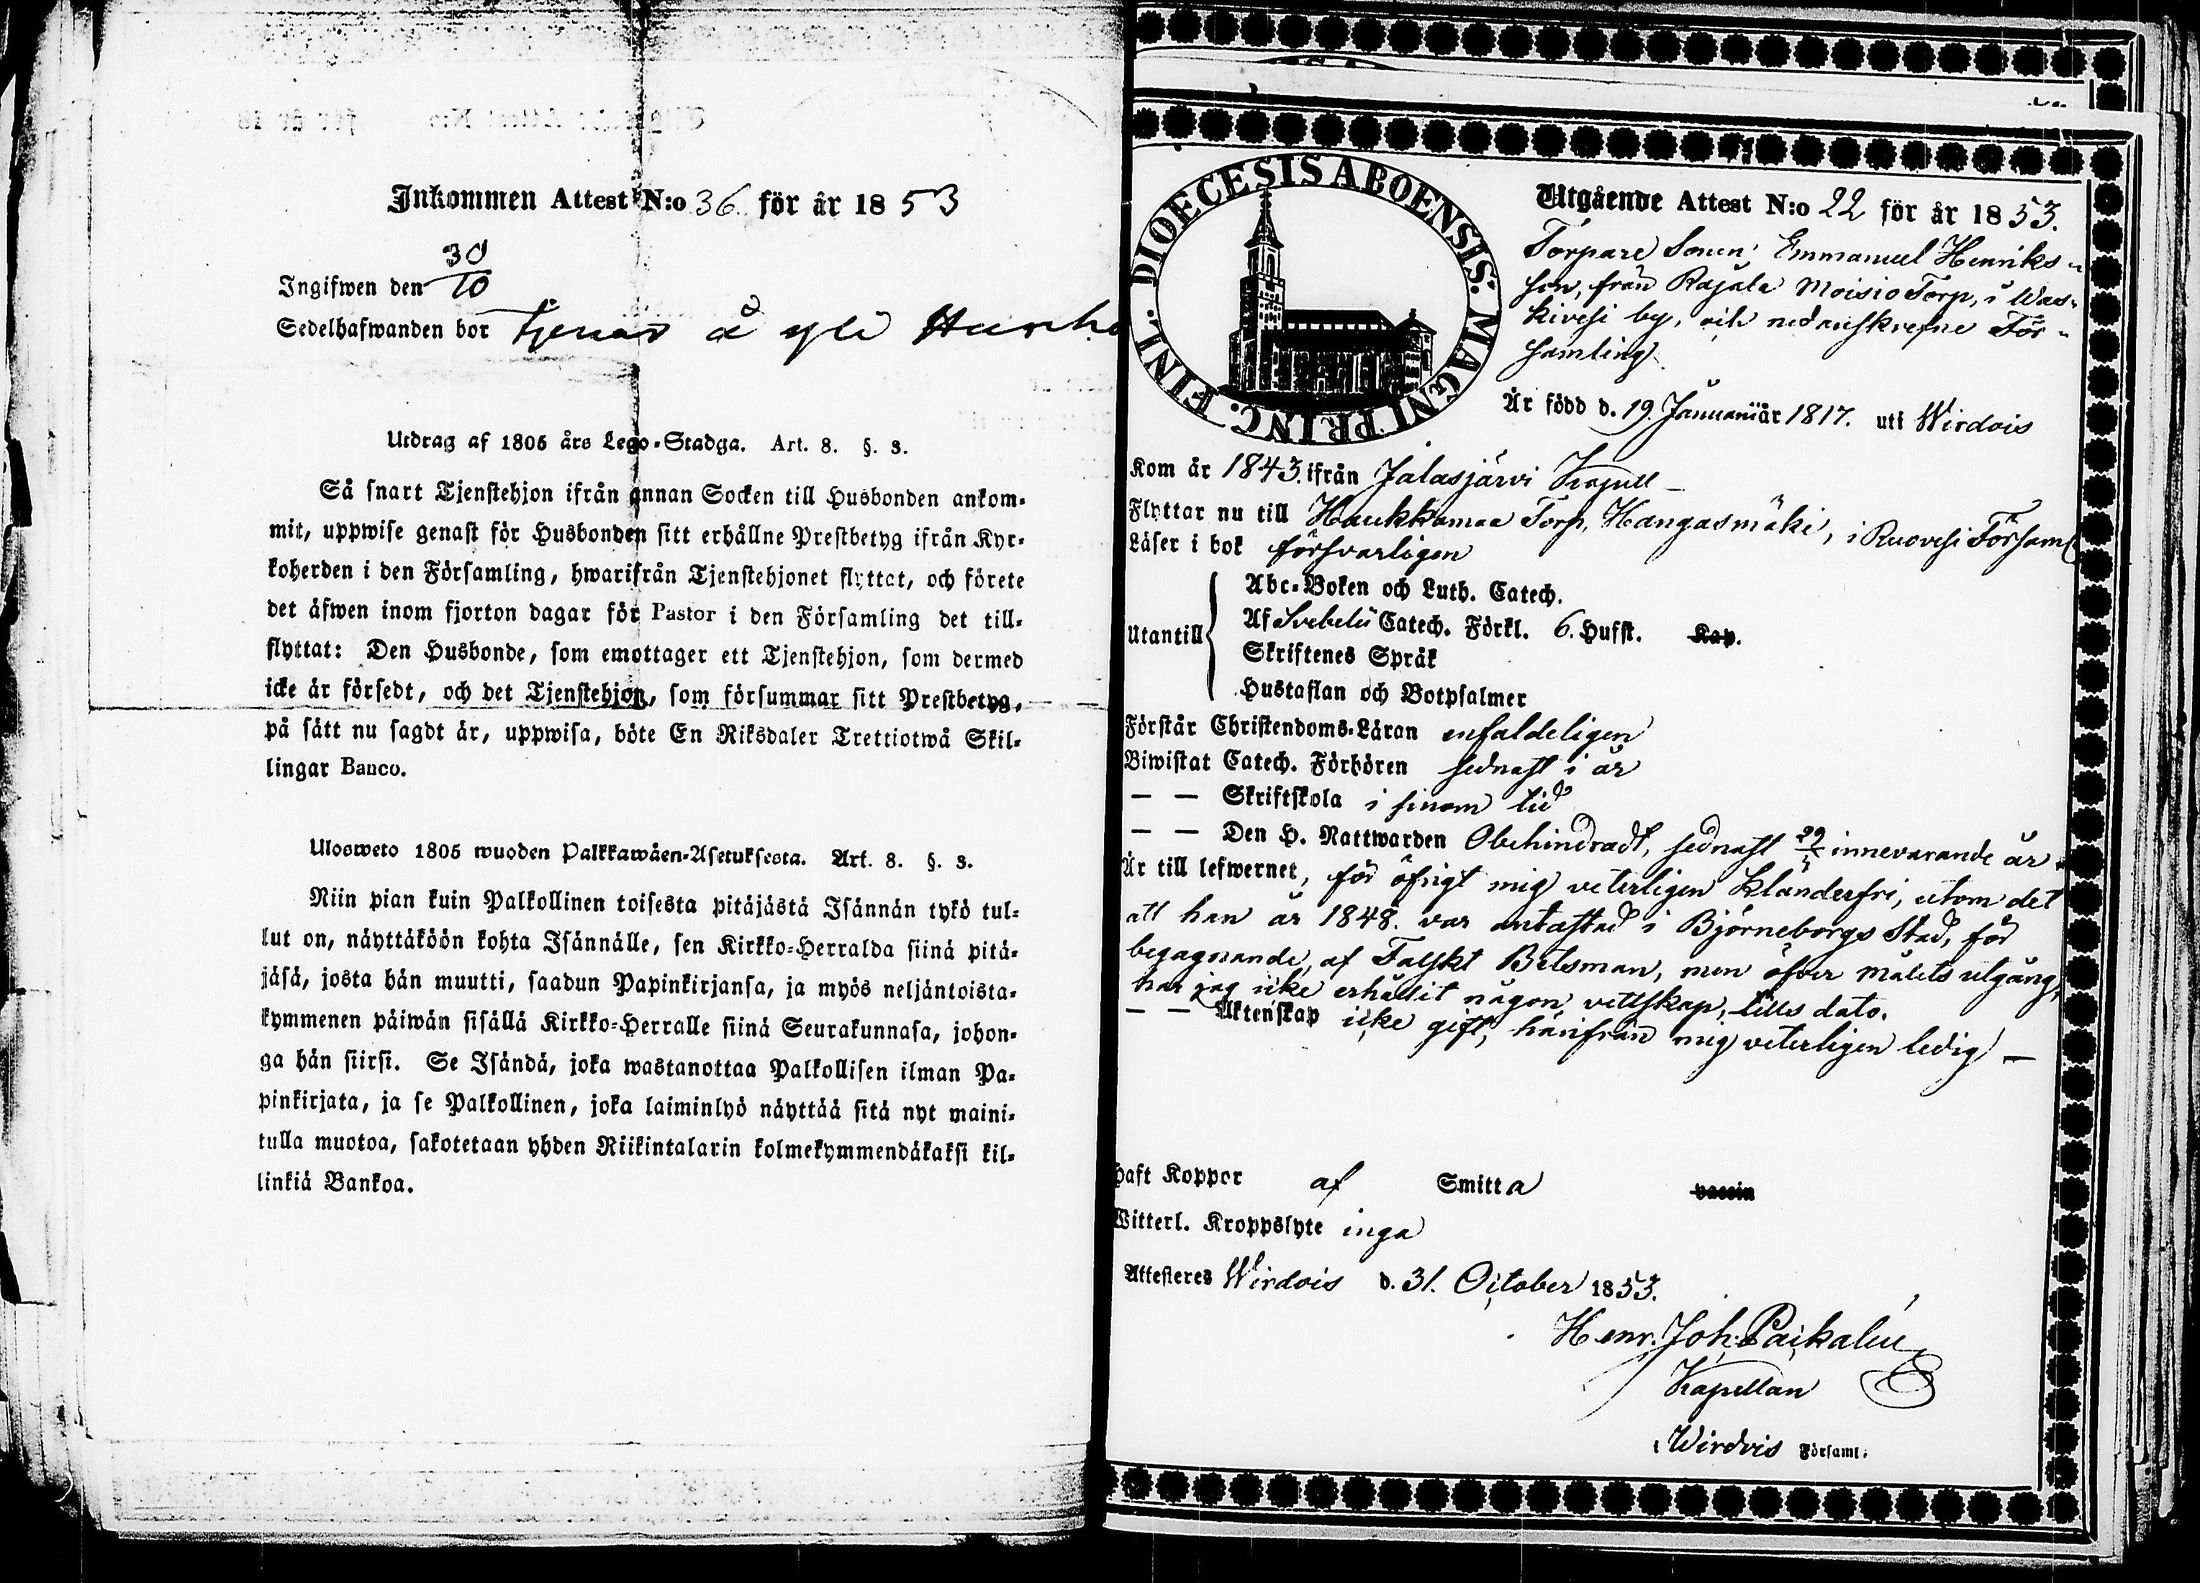 Inkommen Attest N:o 36. för år 1853
Ingifwen den 30/10
Sedelhafwanden bor tjenar å yli
Utdrag af 1805 års Lego-Stadga. Art. 8. §. 3.
Så snart Tjenstehjon ifrån annan Socken till Husbonden ankom-
mit, uppwise genast för Husbonden sitt erhållne Prestbetyg ifrån Kyr-
koherden i den Församling, hwarifrån Tjenstehjonet flyttat, och förete
det äfwen inom fjorton dagar för Pastor i den Församling det till-
flyttat: Den Husbonde, som emottager ett Tjenstehjon, som dermed
icke är försedt, och det Tjenstehjon, som försummar sitt Prestbetyg,
på sätt nu sagdt är, uppwisa, böte En Riksdaler Trettiotwå Skil-
lingar Banco.
Ulosweto 1805 wuoden Palkkawäen-Asetuksesta. Art. 8. §. 3.
Niin pian kuin Palkollinen toisesta pitäjästä Isännän tykö tul-
lut on, näyttäköön kohta Isännälle, sen Kirkko-Herralda siinä pitä-
jäsä, josta hän muutti, saadun Papinkirjansa, ja myös neljäntoista-
kymmenen päiwän sisällä Kirkko-Herralle siinä Seurakunnasa, johon-
ga hän siirsi. Se Isändä, joka wastanottaa Palkollisen ilman Pa-
pinkirjata, ja se Palkollinen, joka laiminlyö näyttää sitä nyt maini-
tulla muotoa, sakotetaan yhden Riikintalarin kolmekymmendäkaksi kil-
linkiä Bankoa.
DIOECESIS ABOENSIS. MAGNI PRINC. FINL.
Utgående Attest N:o 22 för år 1853.
Torpare Sonen, Emmanuel Henriks-
son, från Rajala Moisio Torp, i Was-
kivesi by, och nedanskrefne För-
samling.
Är född d. 19. Januarii år 1817. uti Wirdois
Kom år 1843. ifrån Jalasjärvi Kapell
Flyttar nu till Haukkamaa Torp, Hangasmäki, i Ruovesi Församl
Läser i bok försvarligen
Utantill
Abc-Boken och Luth. Catech.
Af Svebelii Catech. Förkl. 6. Hufst. Kap.
Skriftenes Språk
Hustaflan och Botpsalmer
Förstår Christendoms-Läran enfaldeligen
Biwistat Catech. Förhören sednast i år
— — Skriftskola i sinom tid
— — Den H. Nattwarden Obehindradt, sednast 29/5 innevarande år.
Är till lefwernet, för öfrigt mig veterligen klanderfri, utom det
att han år 1848. var antastad i Björneborgs Stad, för
begagnande, af Falskt Betsman, men öfver målets utgång,
har jag icke erhållit någon vettskap, tills dato.
— — Äktenskap icke gift, härifrån mig veterligen ledig —
haft Koppor af Smitta vaccin
Witterl. Kroppslyte inga
Attesteres Wirdois d. 31. October 1853.
Henr. Joh. Paikalén
Kapellan
i Wirdois Församl.